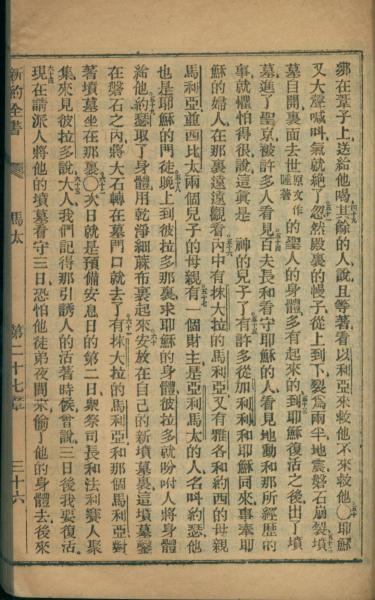 綁在葦子上送給他喝其餘的人說且等著看以利亞來救他不來救他〇耶穌
又大聲喊叫氣就絕了忽然殿裏的幔子從上到下裂為兩半地震磐石崩裂墳
墓自開裏面去世原文作睡著的聖人的身體多有起來的到耶穌復活之後出了墳
墓進了聖京被許多人看見百夫長和看守耶穌的人看見地動和那所經歷的
事就懼怕得很說這真是 神的兒子了有許多從加利利和耶穌同來事奉耶
穌的婦人在那裏遠遠觀看內中有抹大拉的馬利亞又有雅各和約西的母親
馬利亞並西比太兩個兒子的母親有一個財主是亞利馬太的人名叫約瑟他
也是耶穌的門徒晚上到彼拉多那裏求耶穌的身體彼拉多就吩咐人將身體
給他約瑟取了身體用乾淨細蔴布裹起來安放在自己的新墳墓裏這墳墓鑿
在磐石之內將大石轉在墓門口就去了有抹大拉的馬利亞和那個馬利亞對
著墳墓坐在那裏〇次日就是預備安息日的第二日衆祭司長和法利賽人聚
集來見彼拉多說大人我們記得那引誘人的活著時候曾說三日後我要復活
現在請派人將他的墳墓看守三日恐怕他徒弟夜間來偷了他的身體去後來
新約全書 馬太 第二十七章 三十六